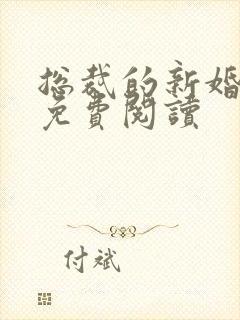 总裁的新婚
免費閱讀
付斌